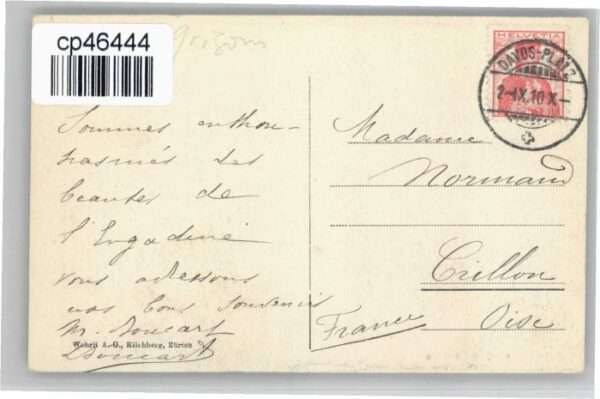 cp46444
Grisons
HELVETIA
DAVOS-PLATZ
2-IX.10 X-
Sommes enthou-
siasmés des
beautés de
l'Engadine
vous adressons
nos bons souvenirs
M. Doucart
Doucart
Wehrli A.-G., Kilchberg, Zürich
Madame
Normand
Crillon
Oise
France